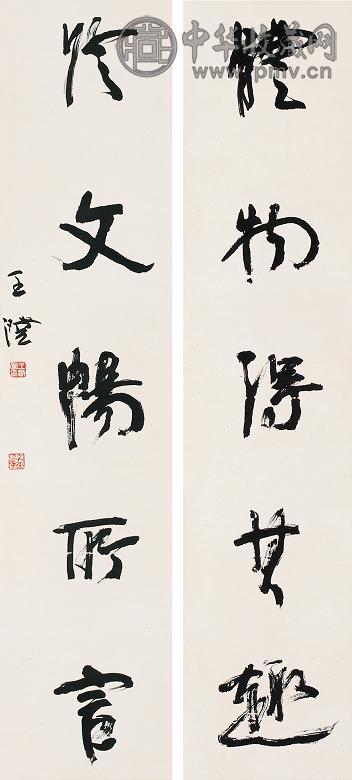 體物得其趣
於文暢所言
王澄
中华收藏网
www.pmv.cn